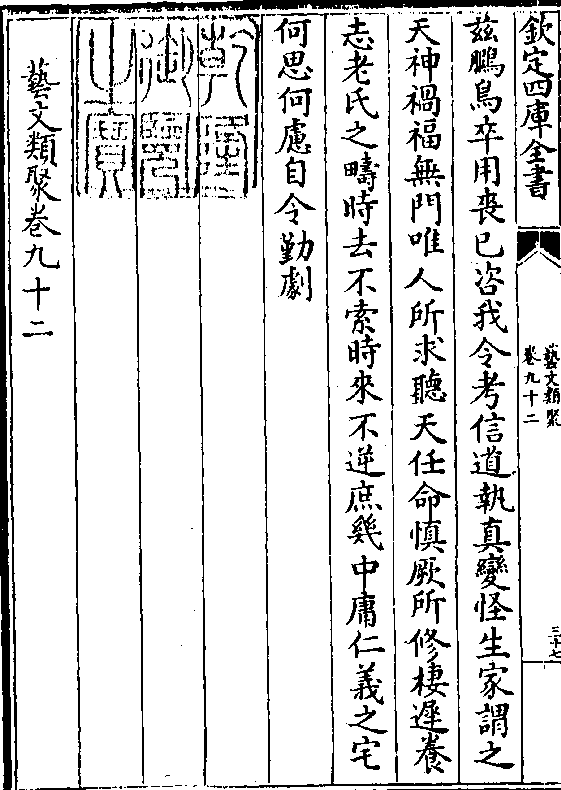 欽定四庫全書
藝文類聚
卷九十二
三十七
茲鵩鳥卒用喪已咨我令考信道執真變怪生家謂之
天神禍福無門唯人所求聽天任命慎厥所修棲遲養
志老氏之疇時去不索時來不逆庶幾中庸仁義之宅
何思何慮自令勤劇
乾隆
御覽
之寶
藝文類聚卷九十二